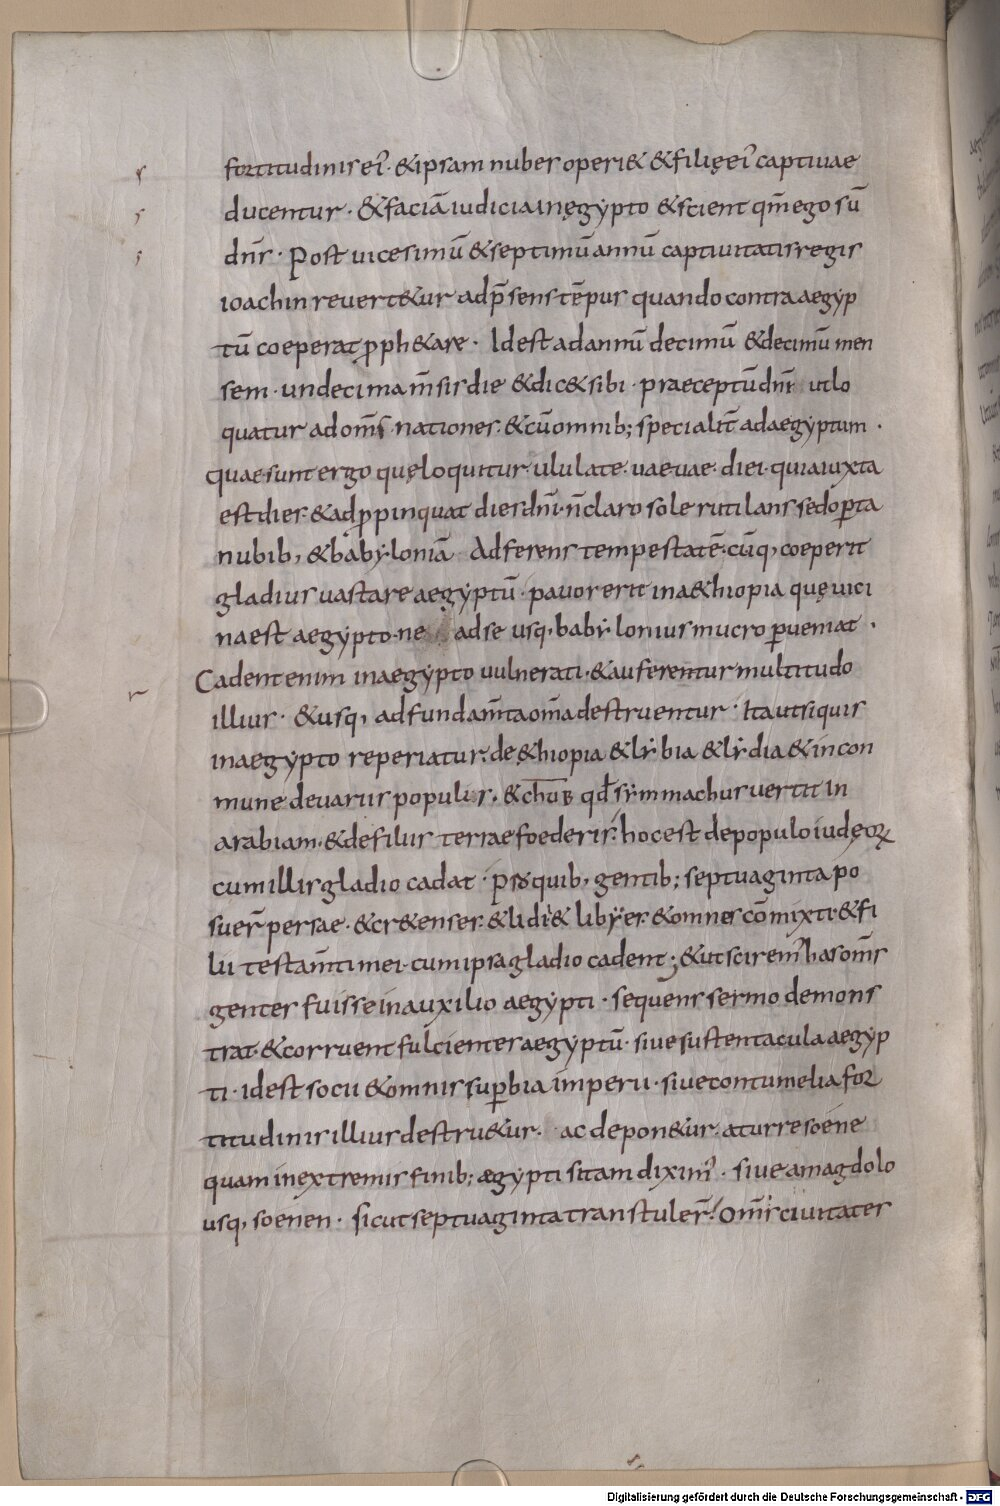 fortitudinis ei᷒. & ipsam nubes operi& & filię ei᷒ captivae
ducentur. & faciā iudicia in ęgypto & scient qm̄ ego sū
dn̄s. Post vicesimū & septimū annū captivitatis regis
ioachin revert&ur ad p̄sens tēpus quando contra aegyp
tū coeperat ꝓph&are. Id est ad annū decimū & decimū men
sem. undecima m̄sis die & dic& sibi praeceptū dn̄i ut lo
quatur ad om̄s nationes. & cū omnib; specialit̄ ad aegyptum.
quae sunt ergo quę loquitur. ululate. vae vae diei. quia iuxta
est dies. & adꝓpinquat dies dn̄i. n̄ claro sole rutilans sed oꝑta
nubib, & babyloniā Adferens tempestatē. cūq, coeperit
gladius vastare aegyptū. pavor erit in a&hiopia quę vici
na est aegypto. ne ad se usq, babylonius mucro ꝑveniat.
Cadent enim in aegypto vulnerati. & auferentur multitudo
illius. & usq, ad fundam̄ta om̄a destruentur. Ita ut siquis
in aegypto reperiatur. de &hiopia & lybia & lydia & in con
mune de variis populis. & chub qđ symmachus vertit In
arabiam. & de filiis terrae foederis. hoc est de populo iudęoꝝ
cum illis gladio cadat. Pro quib, gentib; septuaginta po
suer̄ persae. & cr&enses. & lidi & libyes & omnes cōmixti. & fi
lii testam̄ti mei. cum ipsa gladio cadent; & ut sciremꝰ has om̄s
gentes fuisse in auxilio aegypti. sequens sermo demons
trat. & corruent fulcientes aegyptū. sive sustentacula aegyp
ti. id est socii & omnis suꝑbia imperii. sive contumelia for
titudinis illius destru&ur. ac depon&ur. a turre soene
quam in extremis finib; ęgypti sitam diximꝰ. sive a magdolo
usq, soenen. sicut septuaginta transtuler̄. om̄s civitates
Digitalisierung gefördert durch die Deutsche Forschungsgemeinschaft - DFG